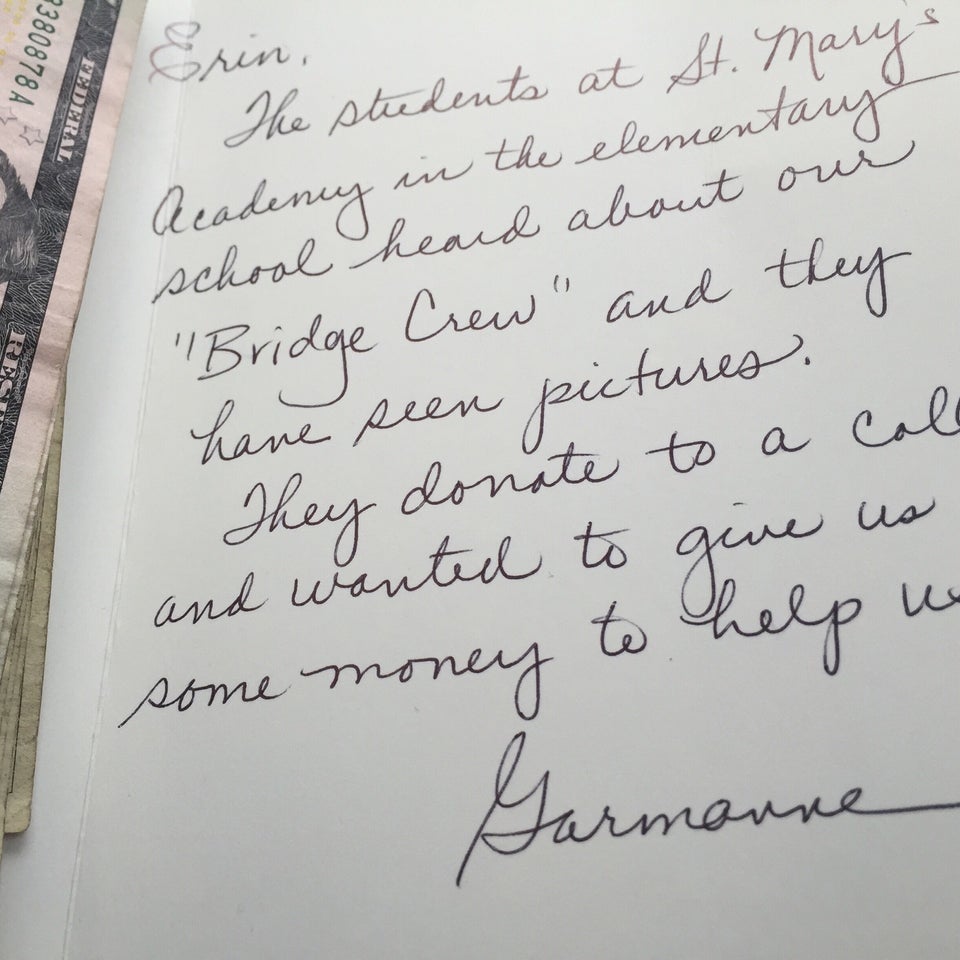 Erin,
The students at St. Mary's
Academy in the elementary
school heard about our
"Bridge Crew" and they
have seen pictures.
They donate to a
and wanted to give us
some money to help
Garmanne
3380878A
FEDERAL